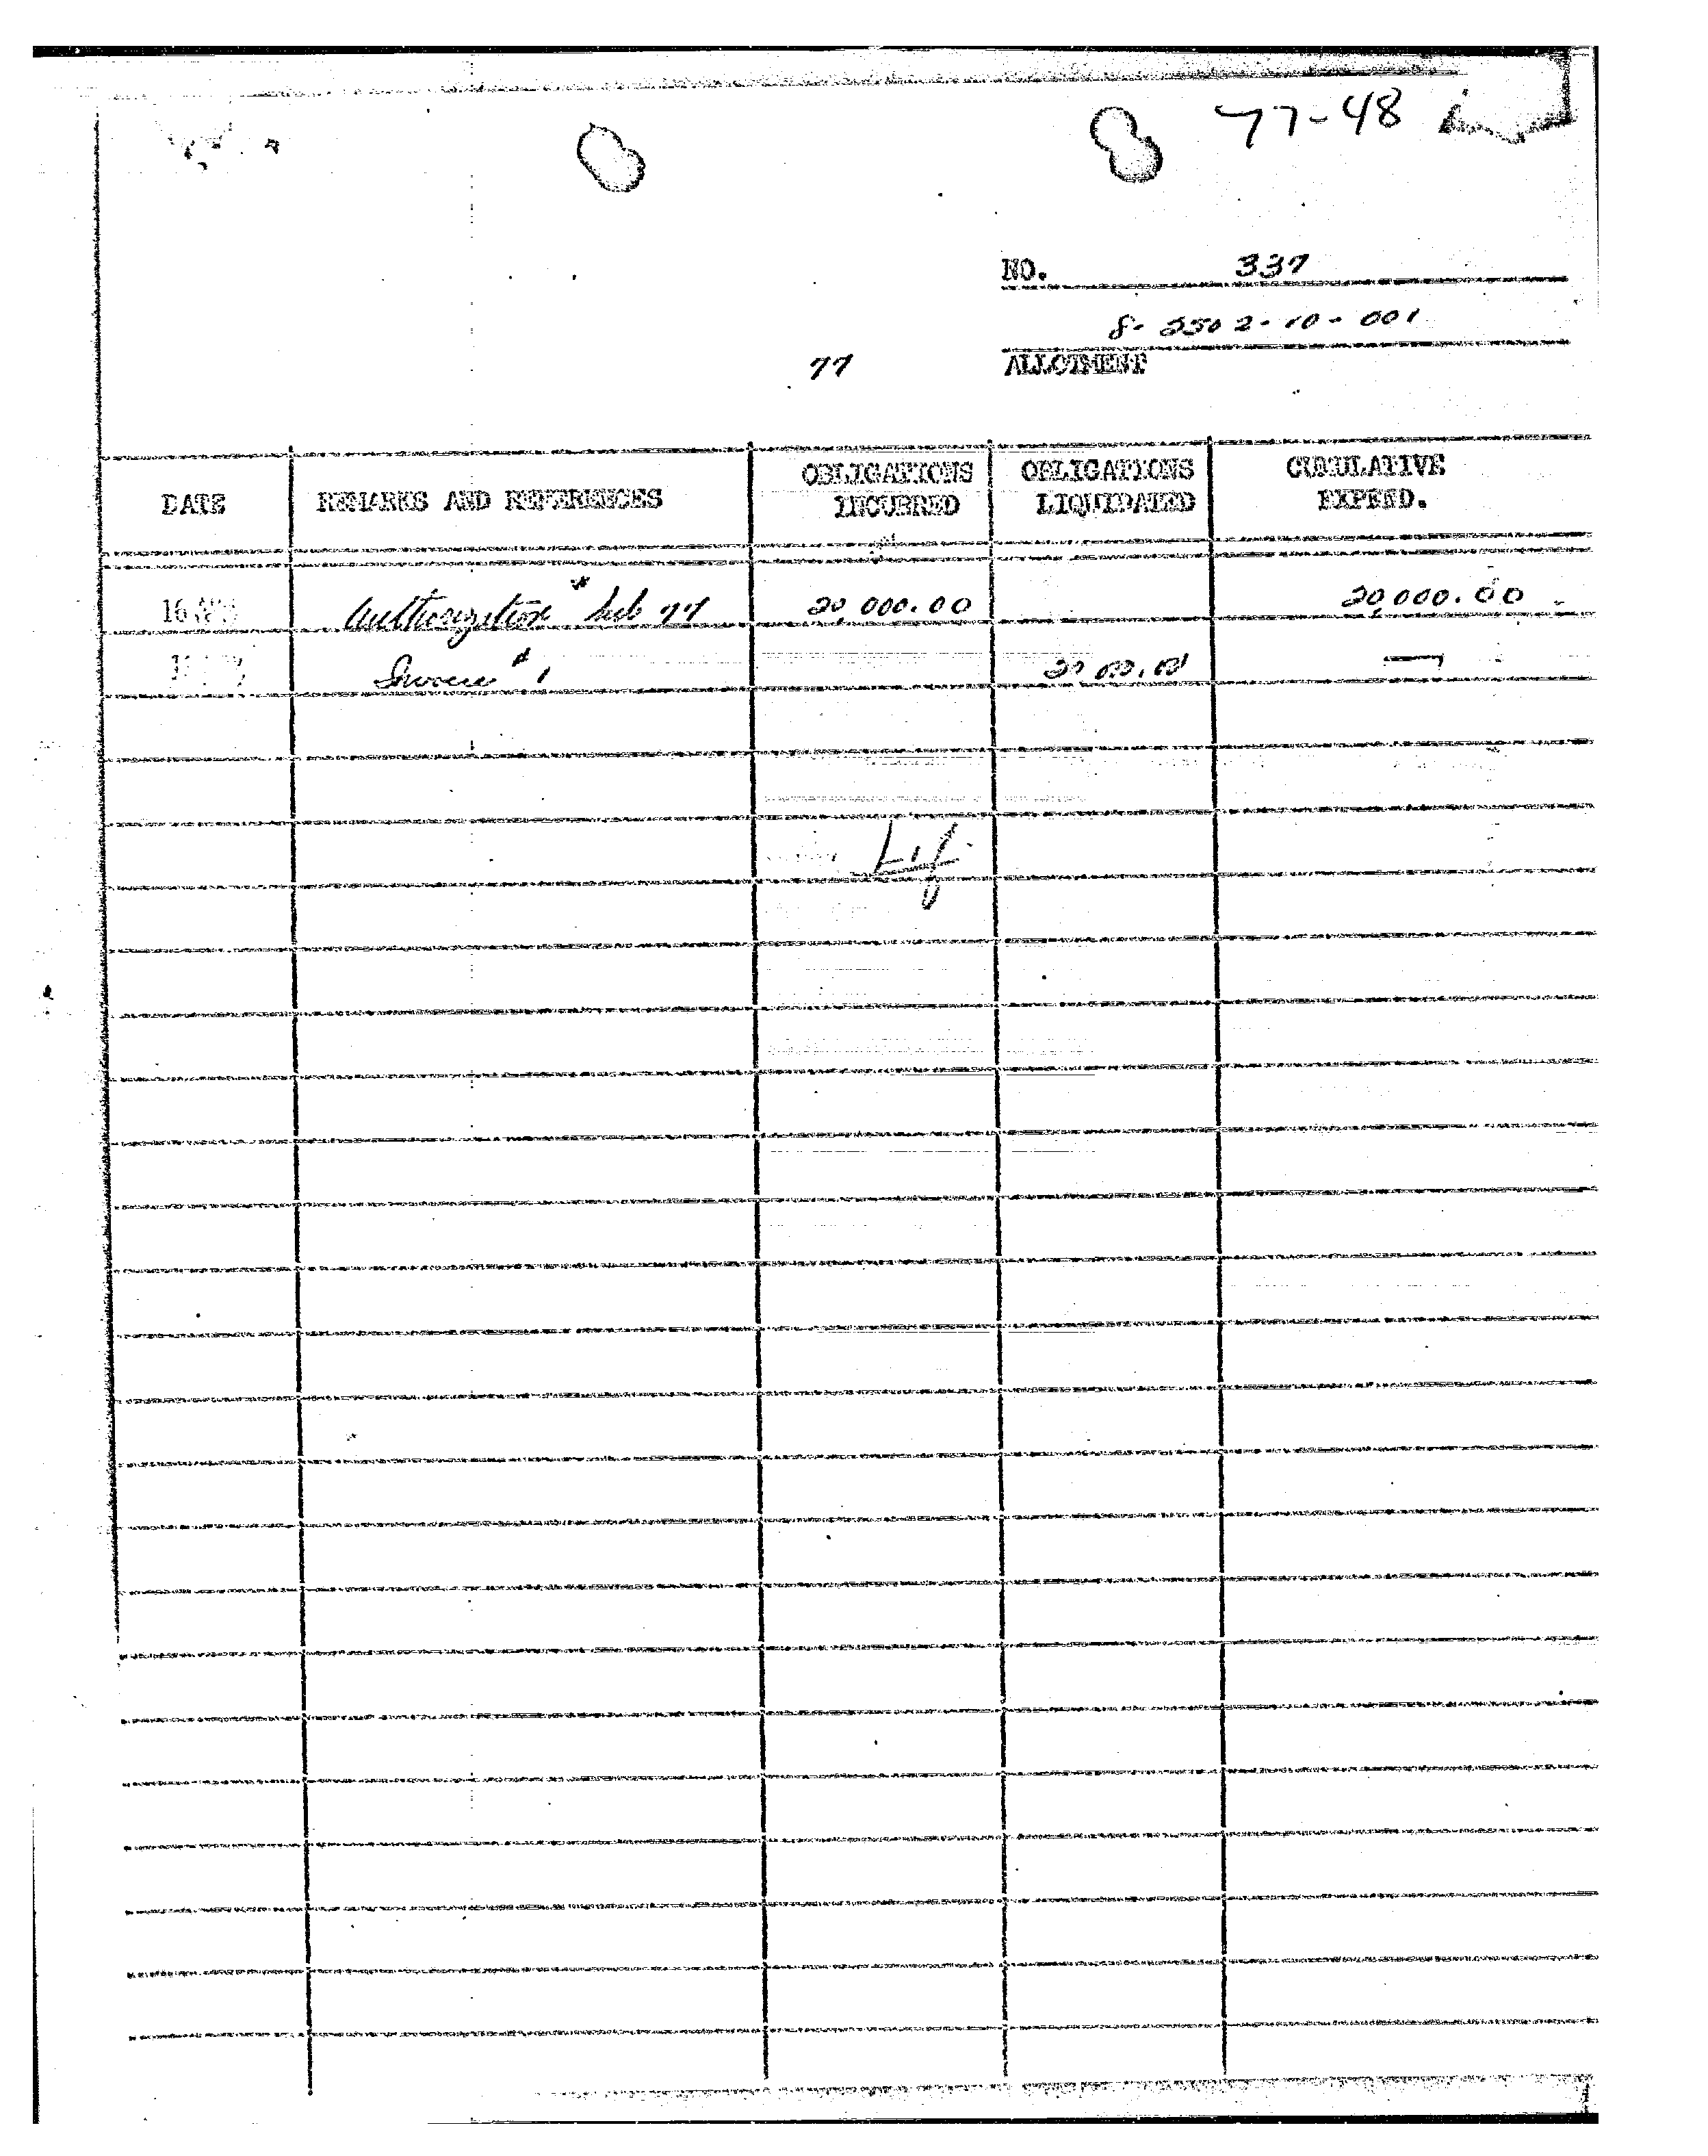 77-48
NO. 337
8-2502-10-001
77 ALLOTMENT
DATE REMARKS AND REFERENCES OBLIGATIONS INCURRED OBLIGATIONS LIQUIDATED CUMULATIVE EXPEND.
16 Authorization # Sub 77 20,000.00 20,000.00
Invoice # 1 20,000.00 —